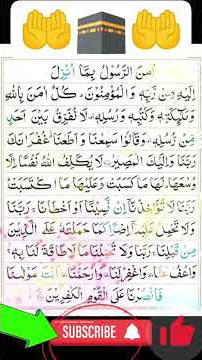 اٰمَنَ الرَّسُوْلُ بِمَاۤ اُنْزِلَ
اِلَيْهِ مِنْ رَّبِّهٖ وَالْمُؤْمِنُوْنَ ۚ كُلٌّ اٰمَنَ بِاللّٰهِ
وَمَلٰٓئِكَتِهٖ وَكُتُبِهٖ وَرُسُلِهٖ ۟ لَا نُفَرِّقُ بَيْنَ اَحَدٍ
مِّنْ رُّسُلِهٖ ۟ وَقَالُوْا سَمِعْنَا وَاَطَعْنَا غُفْرَانَكَ
رَبَّنَا وَاِلَيْكَ الْمَصِيْرُ لَا يُكَلِّفُ اللّٰهُ نَفْسًا اِلَّا
وُسْعَهَا ؕ لَهَا مَا كَسَبَتْ وَعَلَيْهَا مَا اكْتَسَبَتْ ؕ
رَبَّنَا لَا تُؤَاخِذْنَاۤ اِنْ نَّسِيْنَاۤ اَوْ اَخْطَاْنَا ۚ رَبَّنَا
وَلَا تَحْمِلْ عَلَيْنَاۤ اِصْرًا كَمَا حَمَلْتَهٗ عَلَى الَّذِيْنَ
مِنْ قَبْلِنَا ۚ رَبَّنَا وَلَا تُحَمِّلْنَا مَا لَا طَاقَةَ لَنَا بِهٖ ۚ
وَاعْفُ عَنَّا ۟ وَاغْفِرْ لَنَا ۟ وَارْحَمْنَا ۟ اَنْتَ مَوْلٰىنَا
فَانْصُرْنَا عَلَى الْقَوْمِ الْكٰفِرِيْنَ
SUBSCRIBE